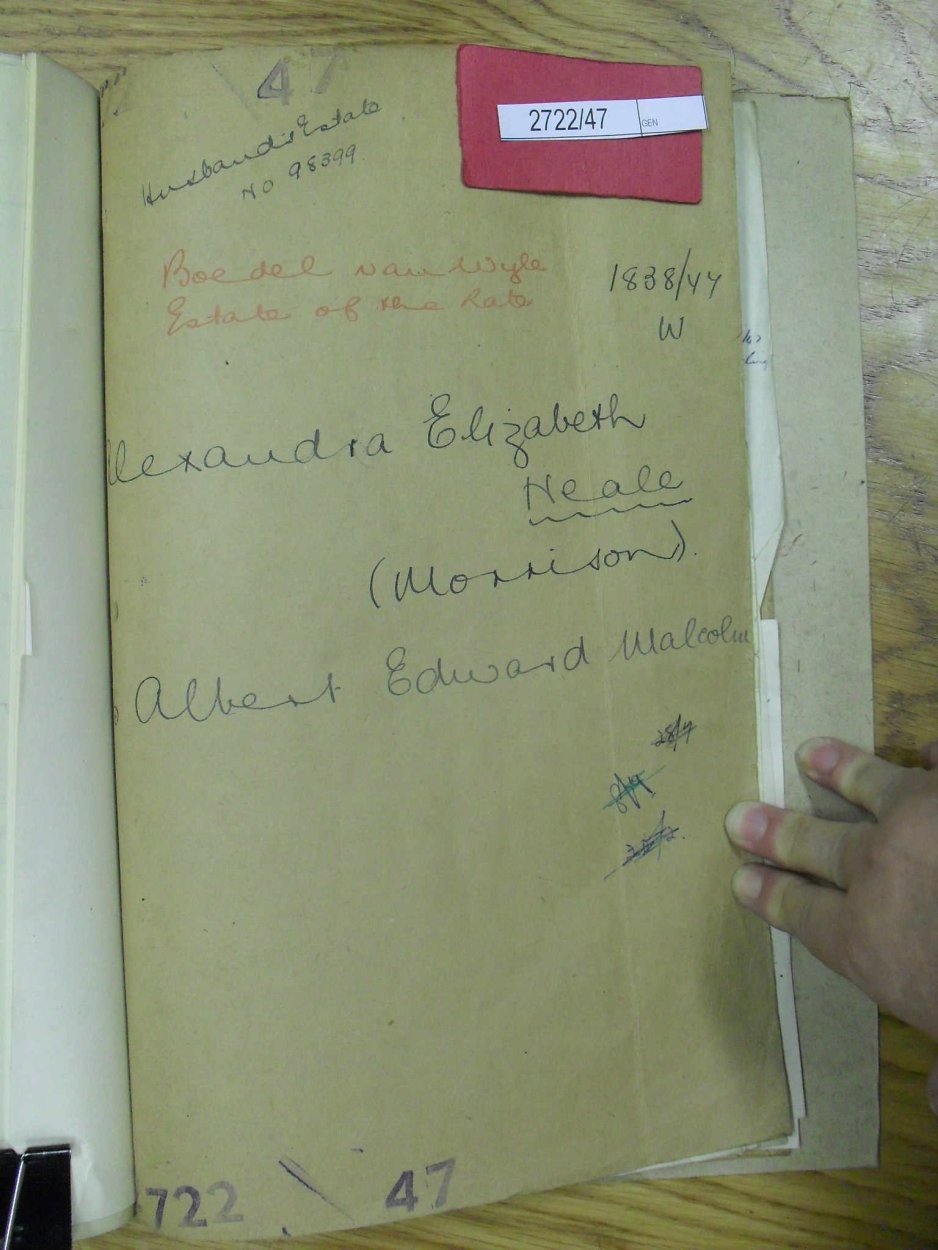 47
2722/47 GEN
Husband's Estate
No 98399
Boedel van Wyle
Estate of the Late
1838/47
W
lexandra Elizabeth
Neale
(Morrison).
Albert Edward Malcolm
28/7
8/9
722 \ 47